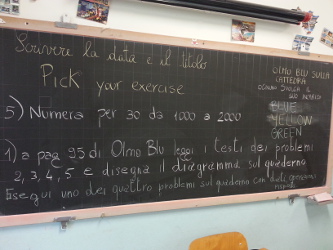 Scrivere la data e il titolo
Pick your exercise
5) Numera per 30 da 1000 a 2000
1) a pag 95 di Olmo Blu leggi i testi dei problemi
2, 3, 4, 5 e disegna il diagramma sul quaderno
Esegui uno dei quattro problemi sul quaderno con dati,
OLMO BLU SULLA
CATTEDRA
BLUE
YELLOW
GREEN